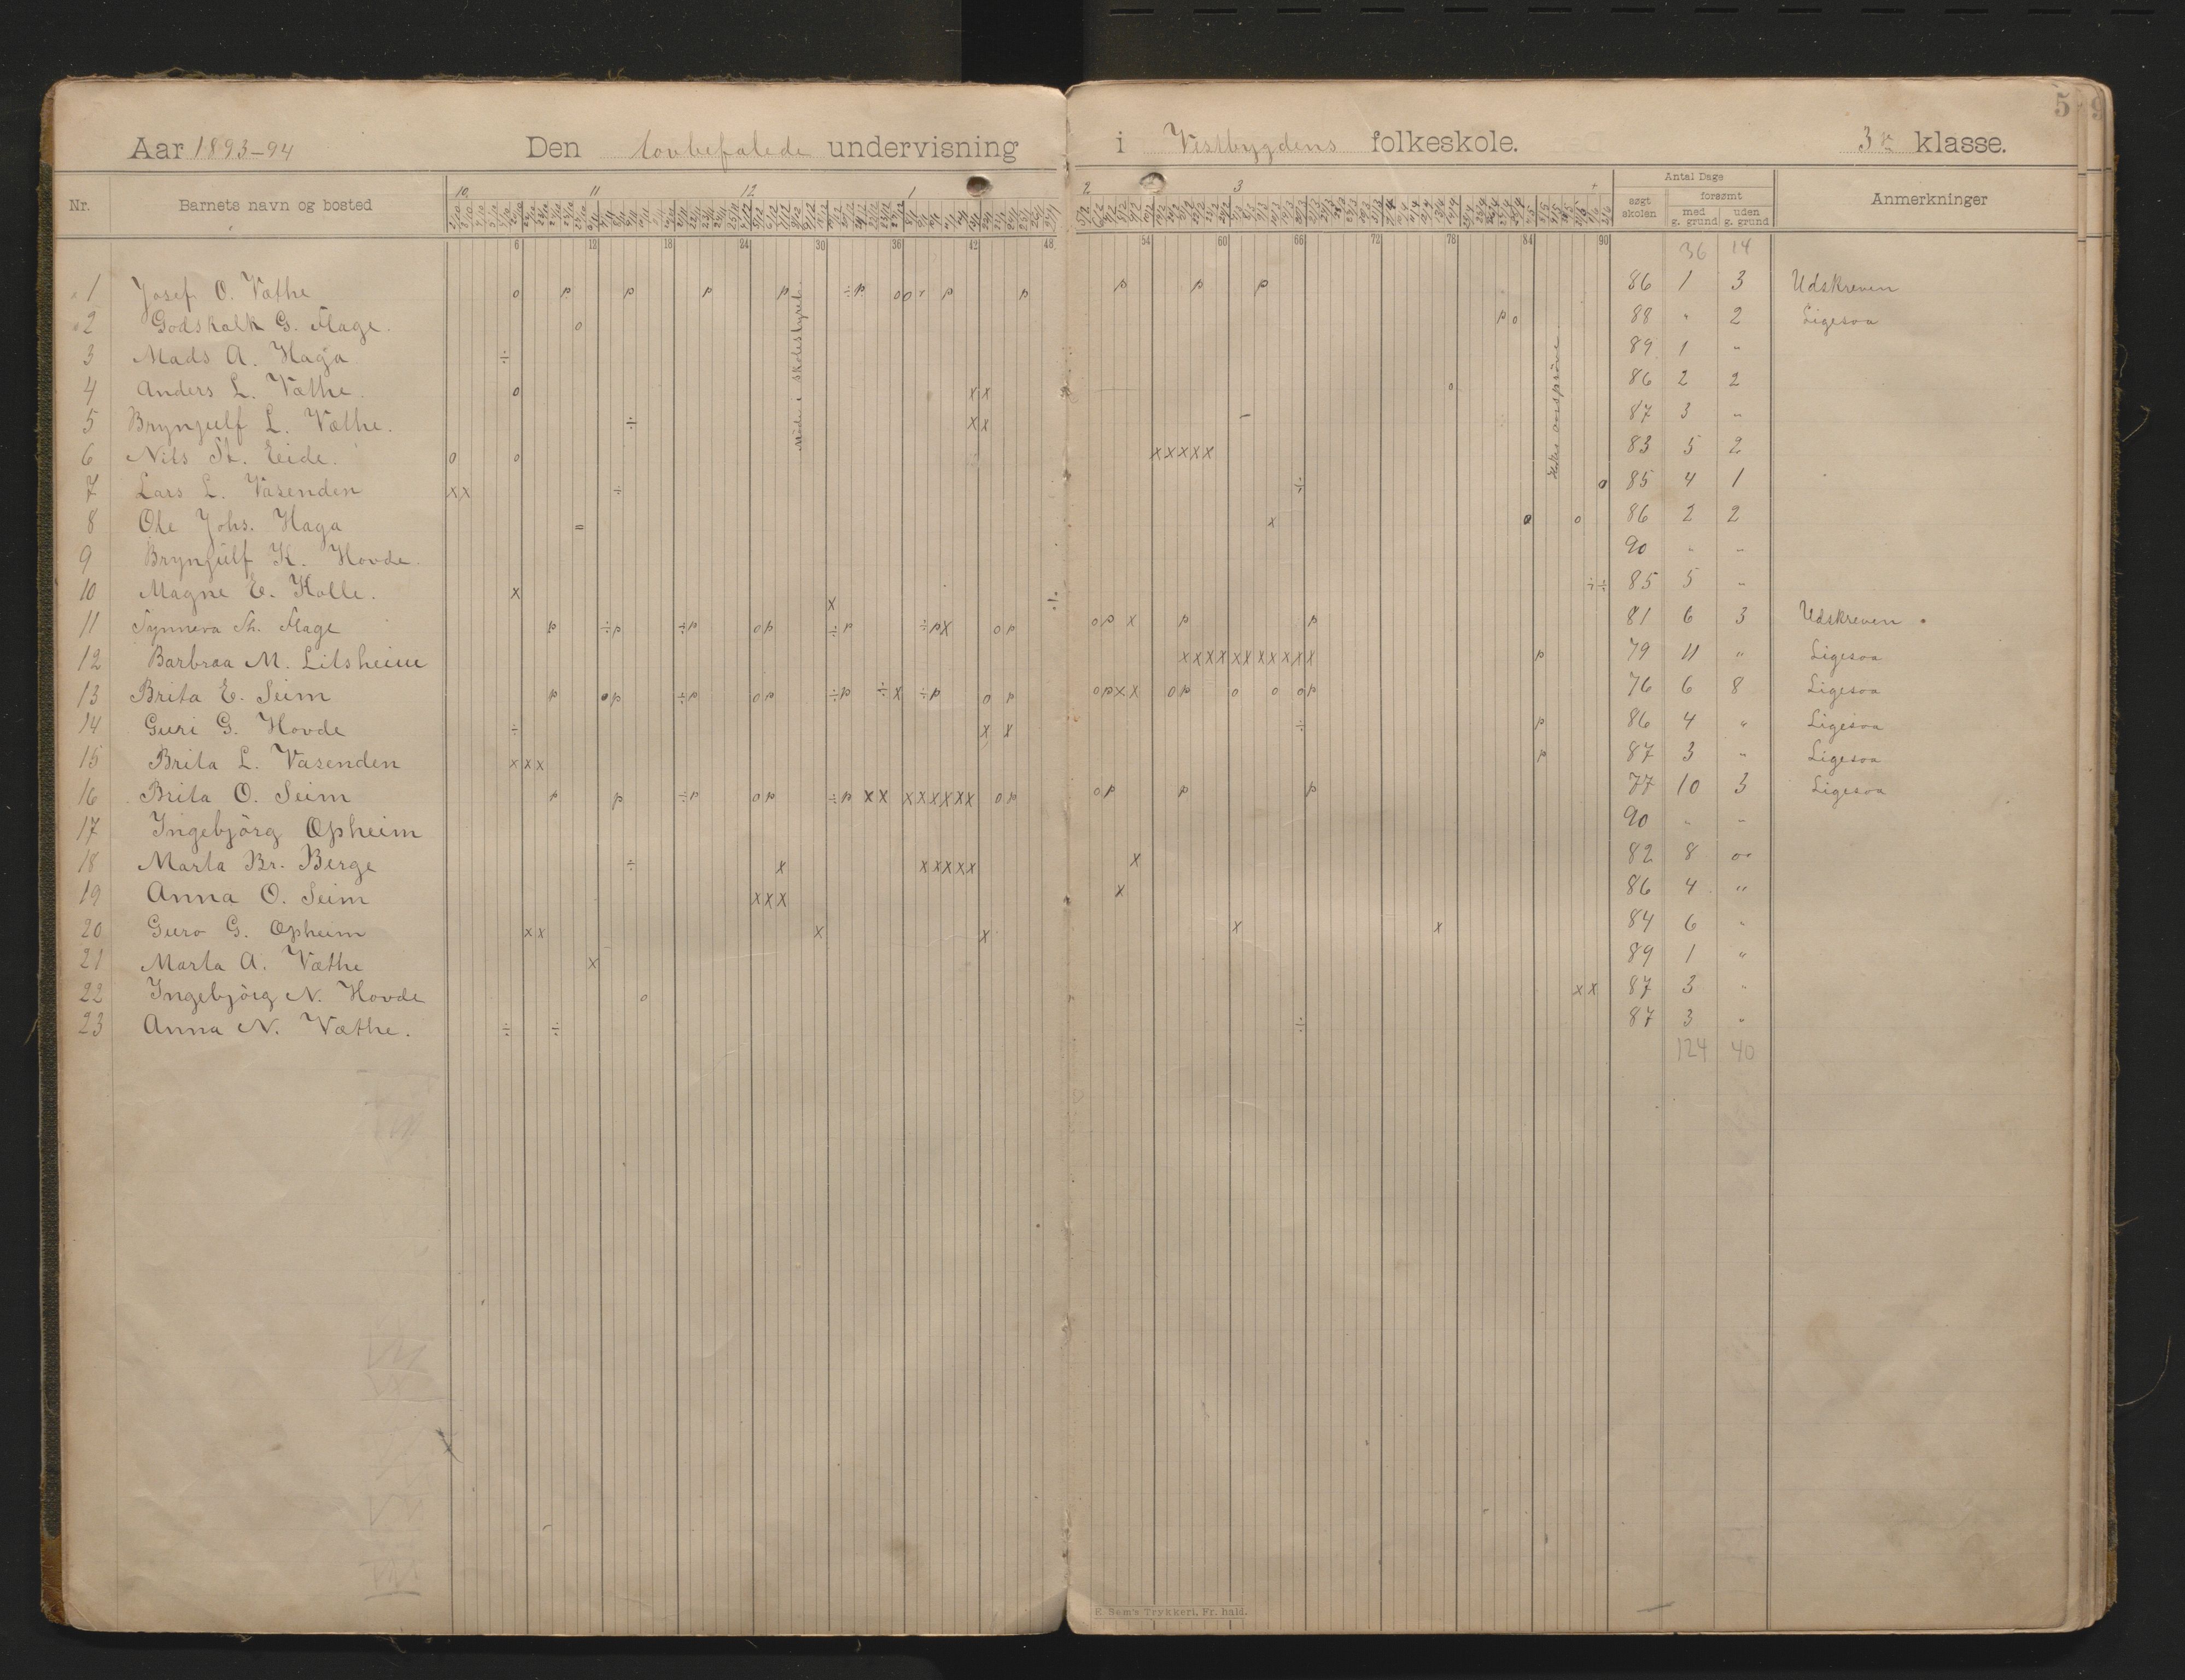 5 9
Aar 1893-94 Den lovbefalede undervisning i Vestbygdens folkeskole. 3die klasse.
Nr. Barnets navn og bosted 10 11 12 1 2 3 Antal Dage Anmerkninger
søgt skolen forsømt
med g. grund uden g. grund
6 12 18 24 30 36 42 48 54 60 66 72 78 84 90 36 14
1 Josef O. Væthe o p p p p ÷ p o o p p p p p 86 1 3 Udskreven
2 Godskalk G. Flage. o p o 88 " 2 Ligesaa
3 Mads A. Haga ÷ 89 1 "
4 Anders L. Væthe. o x x o 86 2 2
5 Brynjulf L. Væthe. ÷ x x - 87 3 "
6 Nils St. Eide. o o x x x x x 83 5 2
7 Lars L. Vasenden x x ÷ ÷ o 85 4 1
8 Ole Johs. Haga = x o o 86 2 2
9 Brynjulf K. Hovde. 90 " "
10 Magne E. Kolle. x x ÷ ÷ ÷ 85 5 "
11 Synneva Th. Flage p ÷ p ÷ p o p ÷ p ÷ p x o p o p x p p 81 6 3 Udskreven
12 Barbraa M. Lilsheim x x x x x x x x x x x p 79 11 " Ligesaa
13 Brita E. Seim p o p ÷ p o p ÷ p ÷ x ÷ p o p o p x x o p o o o p 76 6 8 Ligesaa
14 Guri G. Hovde ÷ x x ÷ p 86 4 " Ligesaa
15 Brita L. Vasenden x x x p 87 3 " Ligesaa
16 Brita O. Seim p p ÷ p o p ÷ p x x x x x x x x o p o p p p 77 10 3 Ligesaa
17 Ingebjörg Opheim 90 " "
18 Marta Br. Berge ÷ x x x x x x x 82 8 "
19 Anna O. Seim x x x x 86 4 "
20 Guro G. Opheim x x x x x x 84 6 "
21 Marta A. Væthe x 89 1 "
22 Ingebjörg N. Hovde o x x 87 3 "
23 Anna N. Væthe. ÷ ÷ ÷ 87 3 "
124 40
Möde i skolestyret.
E. Sem's Trykkeri, Fr. hald.